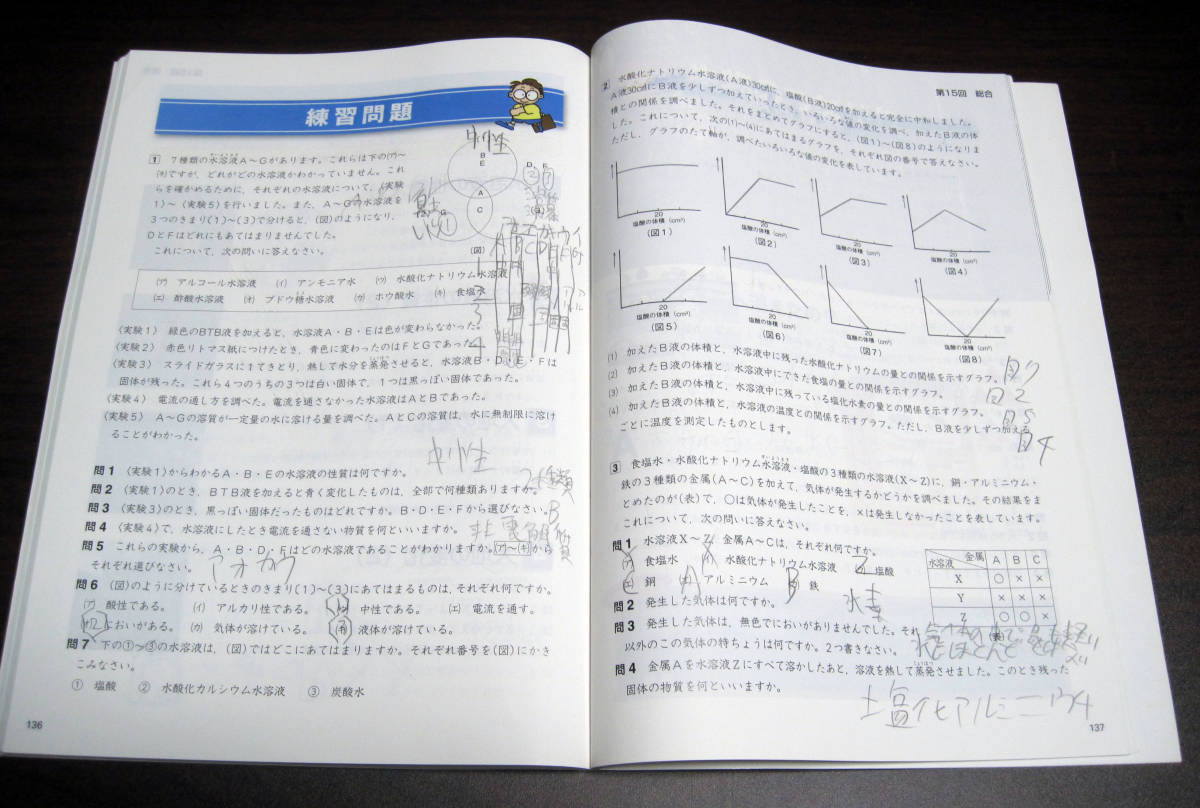 練習問題
1 7種類の水溶液A~Gがあります。これらは下の(ア)~
(キ)ですが、どれがどの水溶液かわかっていません。これ
らを確かめるために、それぞれの水溶液について、〈実験
1〉~〈実験5〉を行いました。また、A~Gの水溶液を
3つのきまり(1)~(3)で分けると、(図)のようになり、
DとFはどれにもあてはまりませんでした。
これについて、次の問いに答えなさい。
中性
B
E
A
C
D F
(図)
(ア) アルコール水溶液 (イ) アンモニア水 (ウ) 水酸化ナトリウム水溶液
(エ) 酢酸水溶液 (オ) ブドウ糖水溶液 (カ) ホウ酸水 (キ) 食塩水
〈実験1〉 緑色のBTB液を加えると、水溶液A・B・Eは色が変わらなかった。
〈実験2〉 赤色リトマス紙につけたとき、青色に変わったのはFとGであった。
〈実験3〉 スライドガラスに1てきとり、熱して水分を蒸発させると、水溶液B・D・E・Fは
固体が残った。これら4つのうちの3つは白い固体で、1つは黒っぽい固体であった。
〈実験4〉 電流の通し方を調べた。電流を通さなかった水溶液はAとBであった。
〈実験5〉 A~Gの溶質が一定量の水に溶ける量を調べた。AとCの溶質は、水に無制限に溶け
ることがわかった。
中性
問1 〈実験1〉からわかるA・B・Eの水溶液の性質は何ですか。
問2 〈実験1〉のとき、BTB液を加えると青く変化したものは、全部で何種類ありますか。
2種類
問3 〈実験3〉のとき、黒っぽい固体だったものはどれですか。B・D・E・Fから選びなさい。
B
問4 〈実験4〉で、水溶液にしたとき電流を通さない物質を何といいますか。
非電解質
問5 これらの実験から、A・B・D・Fはどの水溶液であることがわかりますか。(ア)~(キ)から
それぞれ選びなさい。
アオカウ
問6 (図)のように分けているときのきまり(1)~(3)にあてはまるものは、それぞれ何ですか。
(ア) 酸性である。 (イ) アルカリ性である。 (ウ) 中性である。 (エ) 電流を通す。
(オ) においがある。 (カ) 気体が溶けている。 (キ) 液体が溶けている。
問7 下の①~③の水溶液は、(図)ではどこにあてはまりますか。それぞれ番号を(図)にかき
こみなさい。
① 塩酸 ② 水酸化カルシウム水溶液 ③ 炭酸水
136
第15回 総合
2 水酸化ナトリウム水溶液(A液)30cm³に、塩酸(B液)20cm³を加えると完全に中和しました。
A液30cm³にB液を少しずつ加えていったとき、いろいろな値の変化を調べ、加えたB液の体
積との関係を調べました。それをまとめてグラフにすると、(図1)~(図8)のようになりま
した。これについて、次の(1)~(4)にあてはまるグラフを、それぞれ図の番号で答えなさい。
ただし、グラフのたて軸が、調べたいろいろな値の変化を表しています。
20
塩酸の体積 (cm³)
(図1)
20
塩酸の体積 (cm³)
(図2)
20
塩酸の体積 (cm³)
(図3)
20
塩酸の体積 (cm³)
(図4)
20
塩酸の体積 (cm³)
(図5)
20
塩酸の体積 (cm³)
(図6)
20
塩酸の体積 (cm³)
(図7)
20
塩酸の体積 (cm³)
(図8)
(1) 加えたB液の体積と、水溶液中に残った水酸化ナトリウムの量との関係を示すグラフ。
(2) 加えたB液の体積と、水溶液中にできた食塩の量との関係を示すグラフ。
(3) 加えたB液の体積と、水溶液中に残っている塩化水素の量との関係を示すグラフ。
(4) 加えたB液の体積と、水溶液の温度との関係を示すグラフ。ただし、B液を少しずつ加える
ごとに温度を測定したものとします。
図7
図2
図5
図4
3 食塩水・水酸化ナトリウム水溶液・塩酸の3種類の水溶液(X~Z)に、銅・アルミニウム・
鉄の3種類の金属(A~C)を加えて、気体が発生するかどうかを調べました。その結果をま
とめたのが(表)で、○は気体が発生したことを、×は発生しなかったことを表しています。
これについて、次の問いに答えなさい。
問1 水溶液X~Z、金属A~Cは、それぞれ何ですか。
(ア) 食塩水 (イ) 水酸化ナトリウム水溶液 (ウ) 塩酸
(エ) 銅 (オ) アルミニウム (カ) 鉄
金属 A B C
水溶液
X ○ × ×
Y × × ×
Z ○ ○ ×
(表)
問2 発生した気体は何ですか。
水素
問3 発生した気体は、無色でにおいがありませんでした。それ
以外のこの気体の特ちょうは何ですか。2つ書きなさい。
問4 金属Aを水溶液Zにすべて溶かしたあと、溶液を熱して蒸発させました。このとき残った
固体の物質を何といいますか。
塩化アルミニウム
137